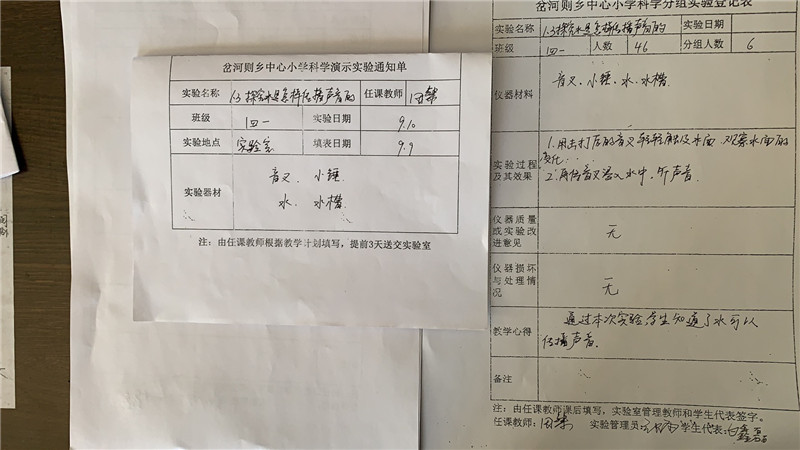 岔河则乡中心小学科学演示实验通知单
实验名称 1.3探究水是怎样传播声音的 任课教师
班级 四一 实验日期 9.10
实验地点 实验室 填表日期 9.9
实验器材 音叉、小锤、
水、水槽
注：由任课教师根据教学计划填写，提前3天送交实验室
岔河则乡中心小学科学分组实验登记表
实验名称 1.3探究水是怎样传播声音的 实验日期
班级 四一 人数 46 分组人数 6
仪器材料 音叉、小锤、水、水槽
实验过程及其效果 1.用击打后的音叉轻轻触及水面，观察水面的
变化.
2.再传音叉浸入水中，听声音.
仪器质量或实验改进意见 无
仪器损坏与处理情况 无
教学心得 通过本次实验,学生知道了水可以
传播声音.
备注
注：由任课教师课后填写，实验室管理教师和学生代表签字。
任课教师: 实验管理员: 学生代表: